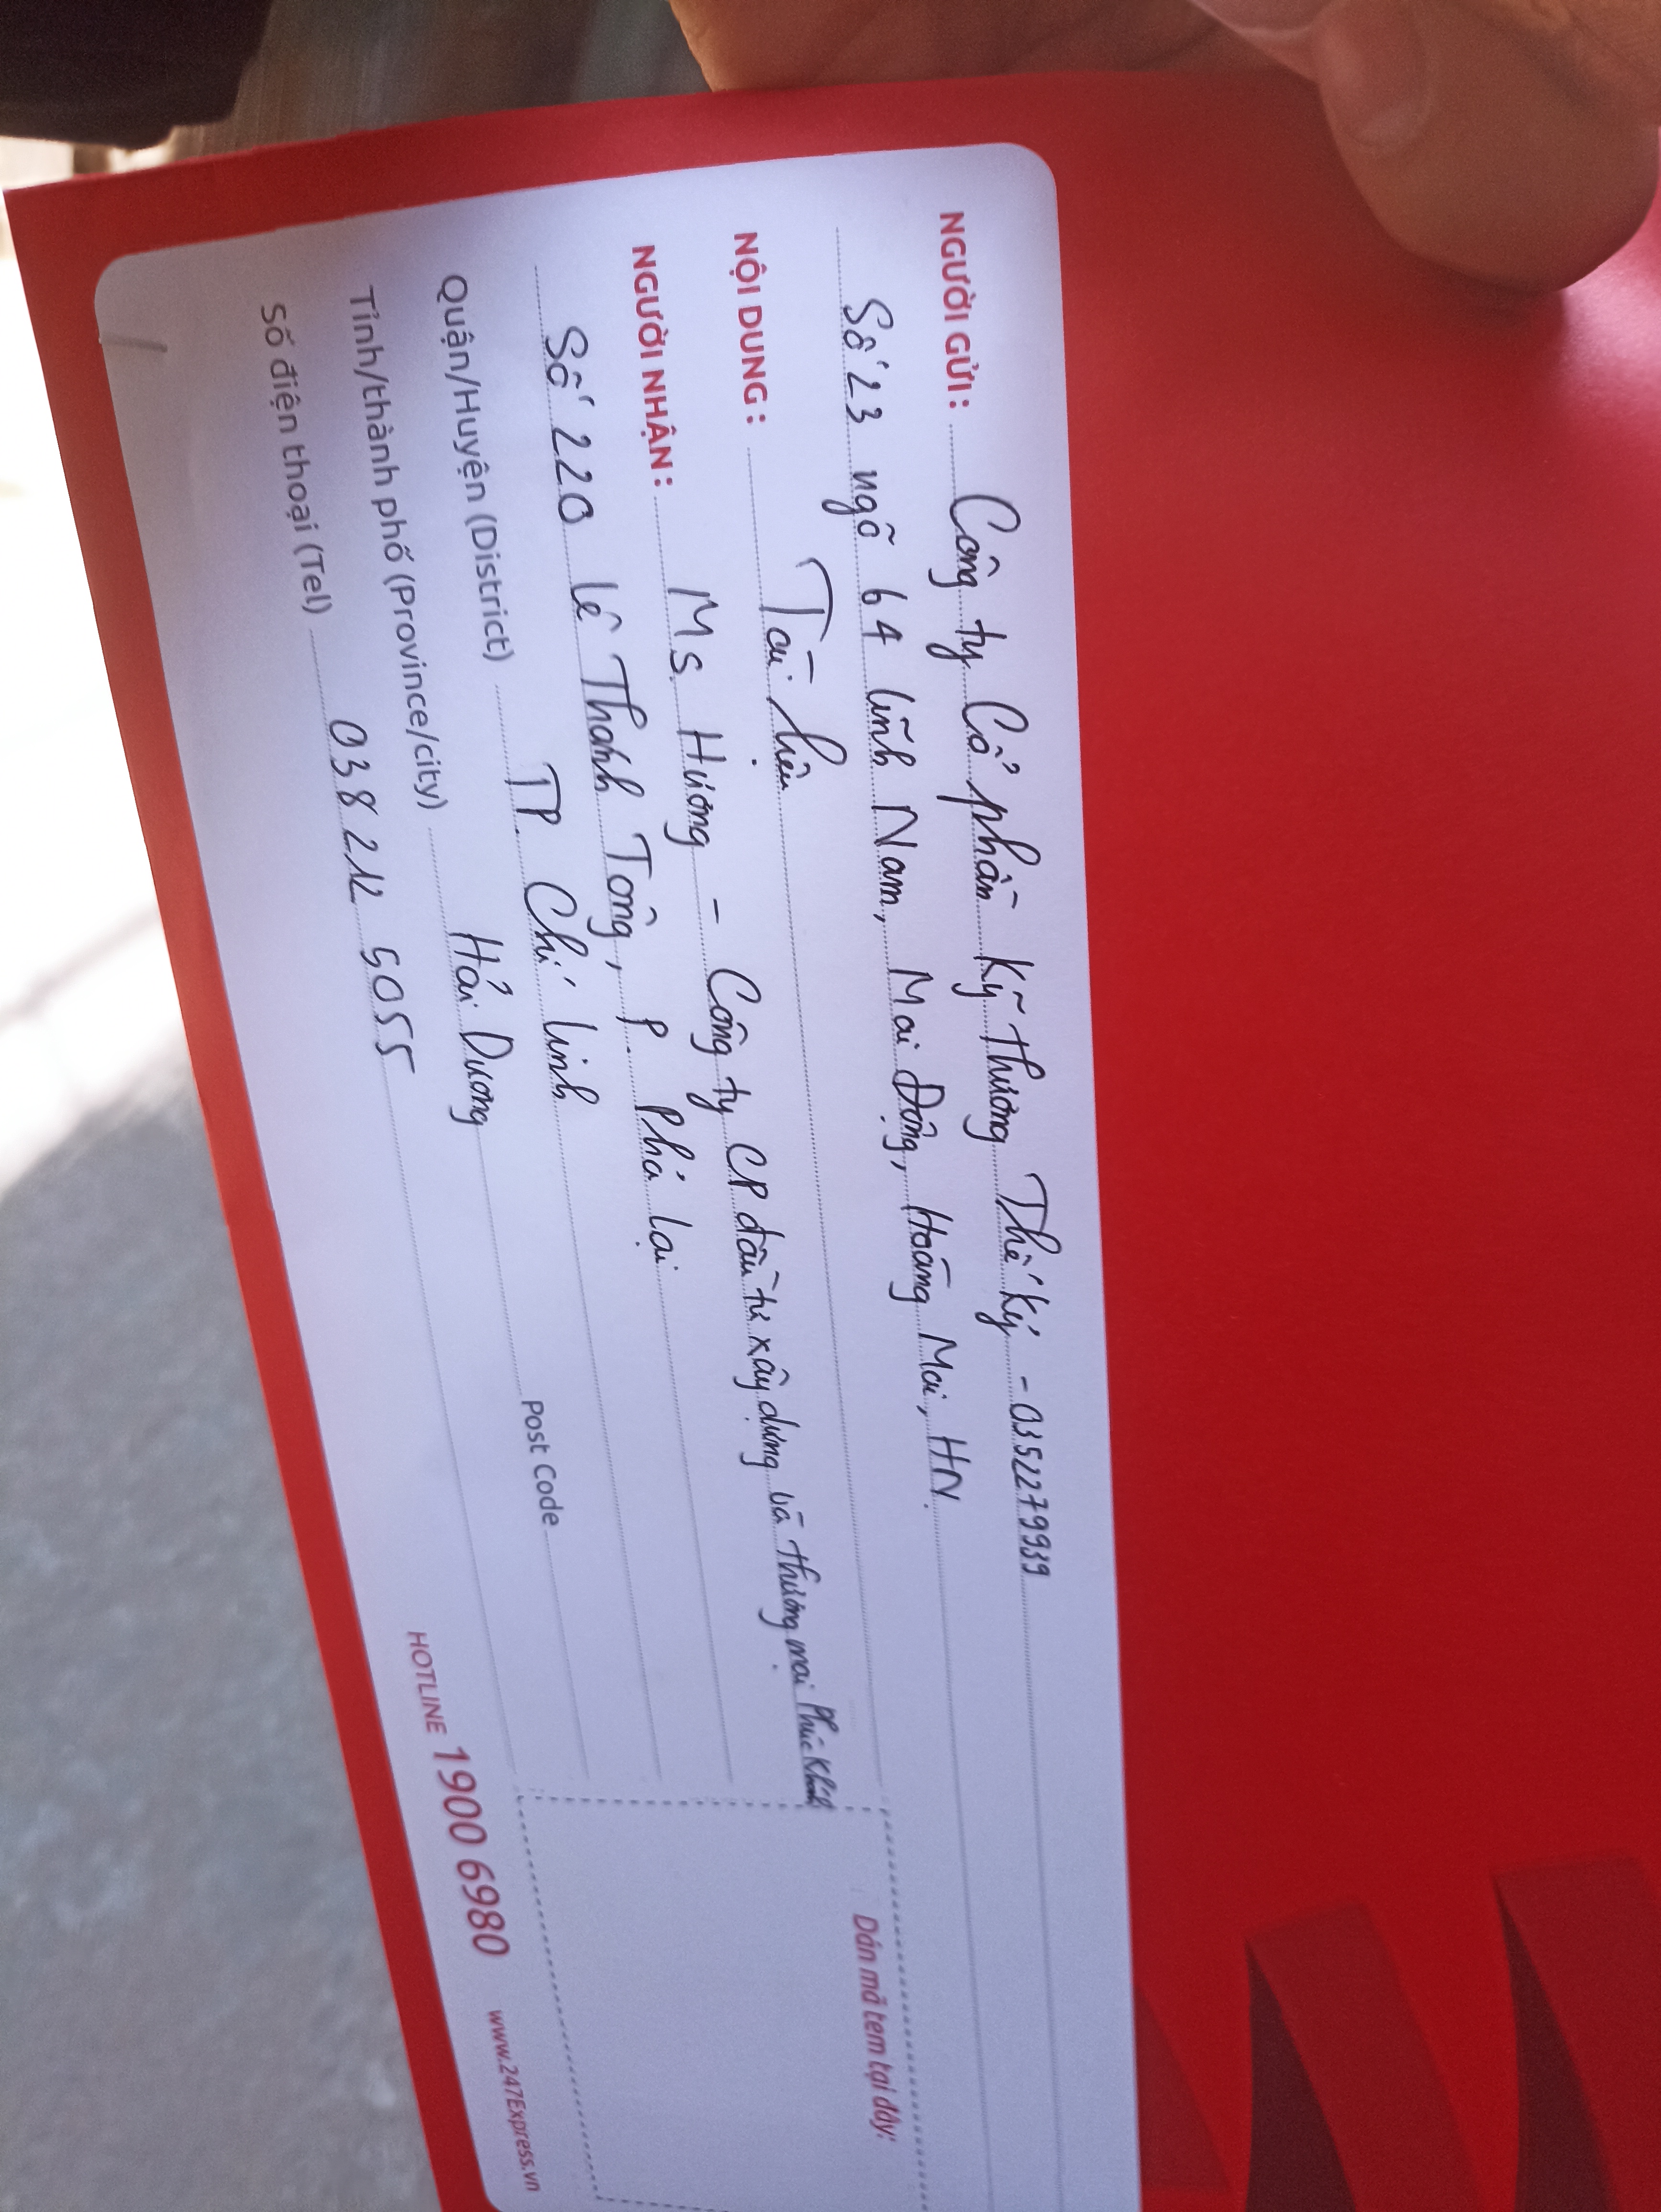 NGƯỜI GỬI: Công ty Cổ phần Kỹ Thương Thế Kỷ - 0352279939
Số 23 ngõ 64 Lĩnh Nam, Mai Động, Hoàng Mai, HN.
NỘI DUNG: Tài liệu
NGƯỜI NHẬN: Ms Hương - Công ty CP đầu tư xây dựng và thương mại Phúc Khánh
Số 220 Lê Thánh Tông, P. Phả Lại
Quận/Huyện (District) TP. Chí Linh
Tỉnh/thành phố (Province/city) Hải Dương Post Code
Số điện thoại (Tel) 038 212 5055
Dán mã tem tại đây:
HOTLINE 1900 6980 www.247Express.vn